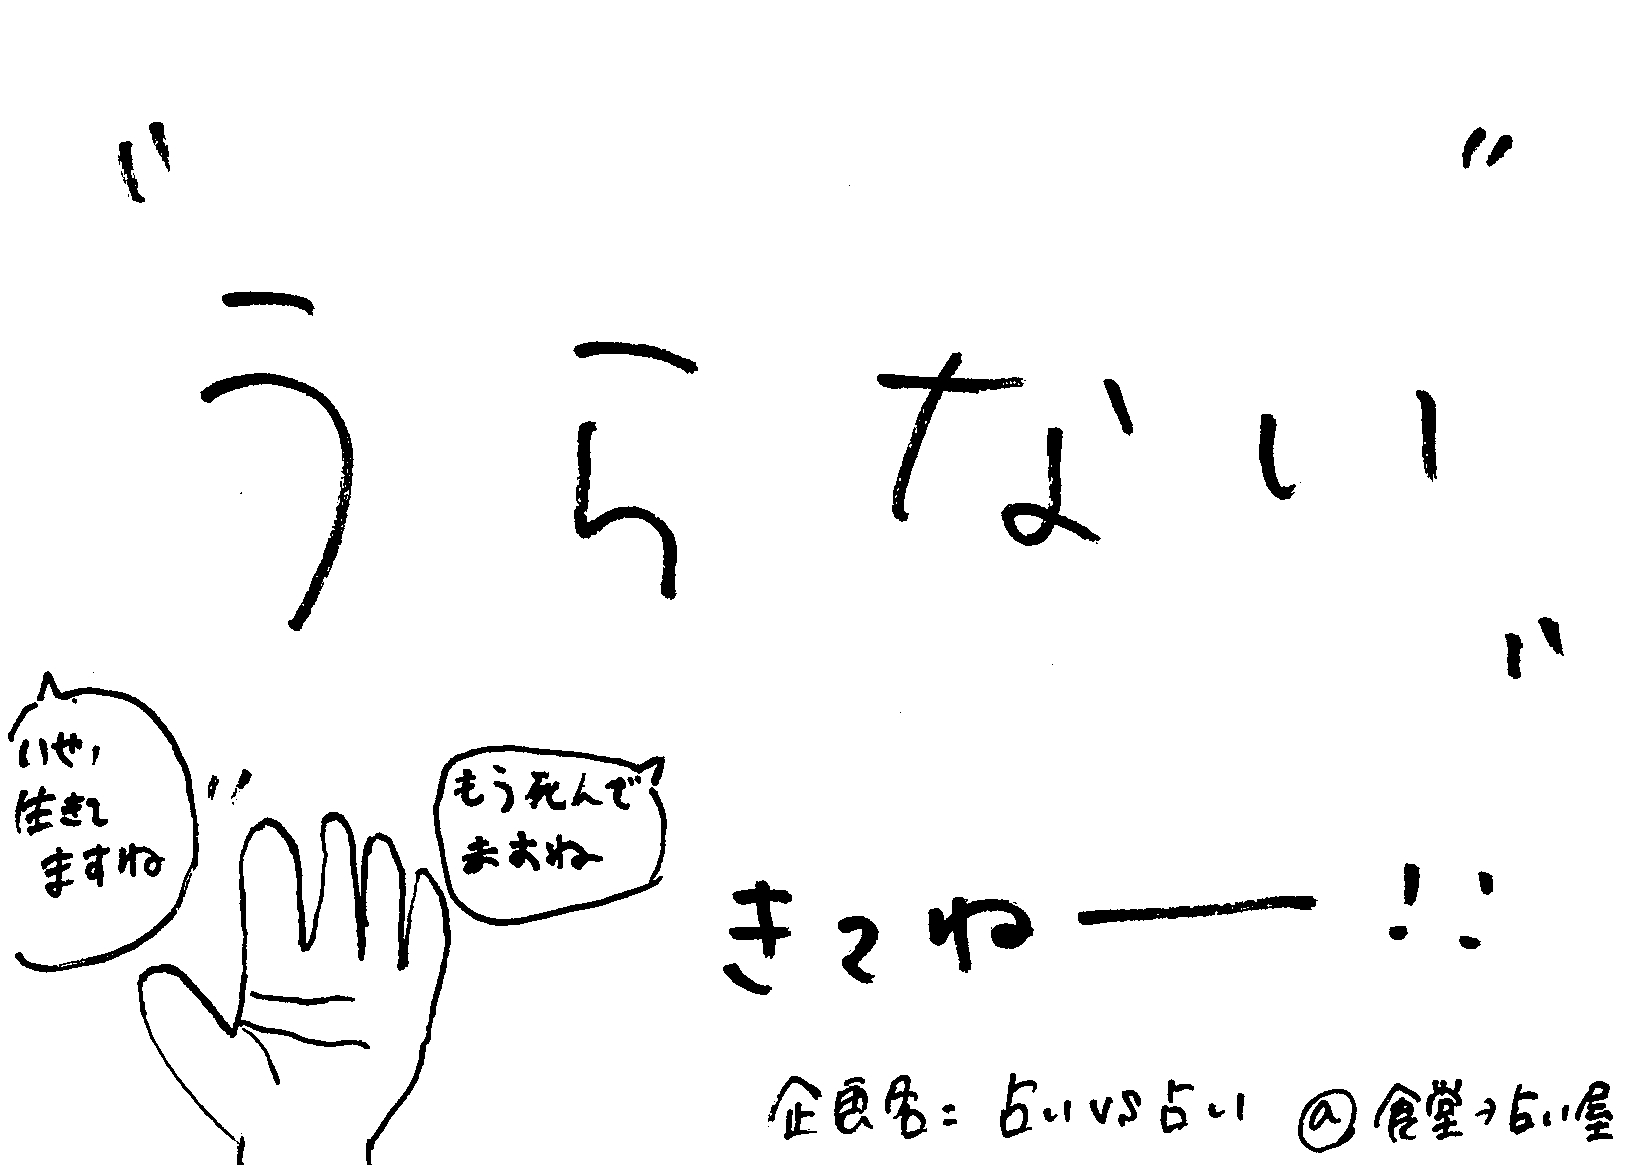 “うらない”
いせ，
生きて
ますね
もう死んで
ますね
きてね——!!
企画名：占いvs占い @食堂→占い屋